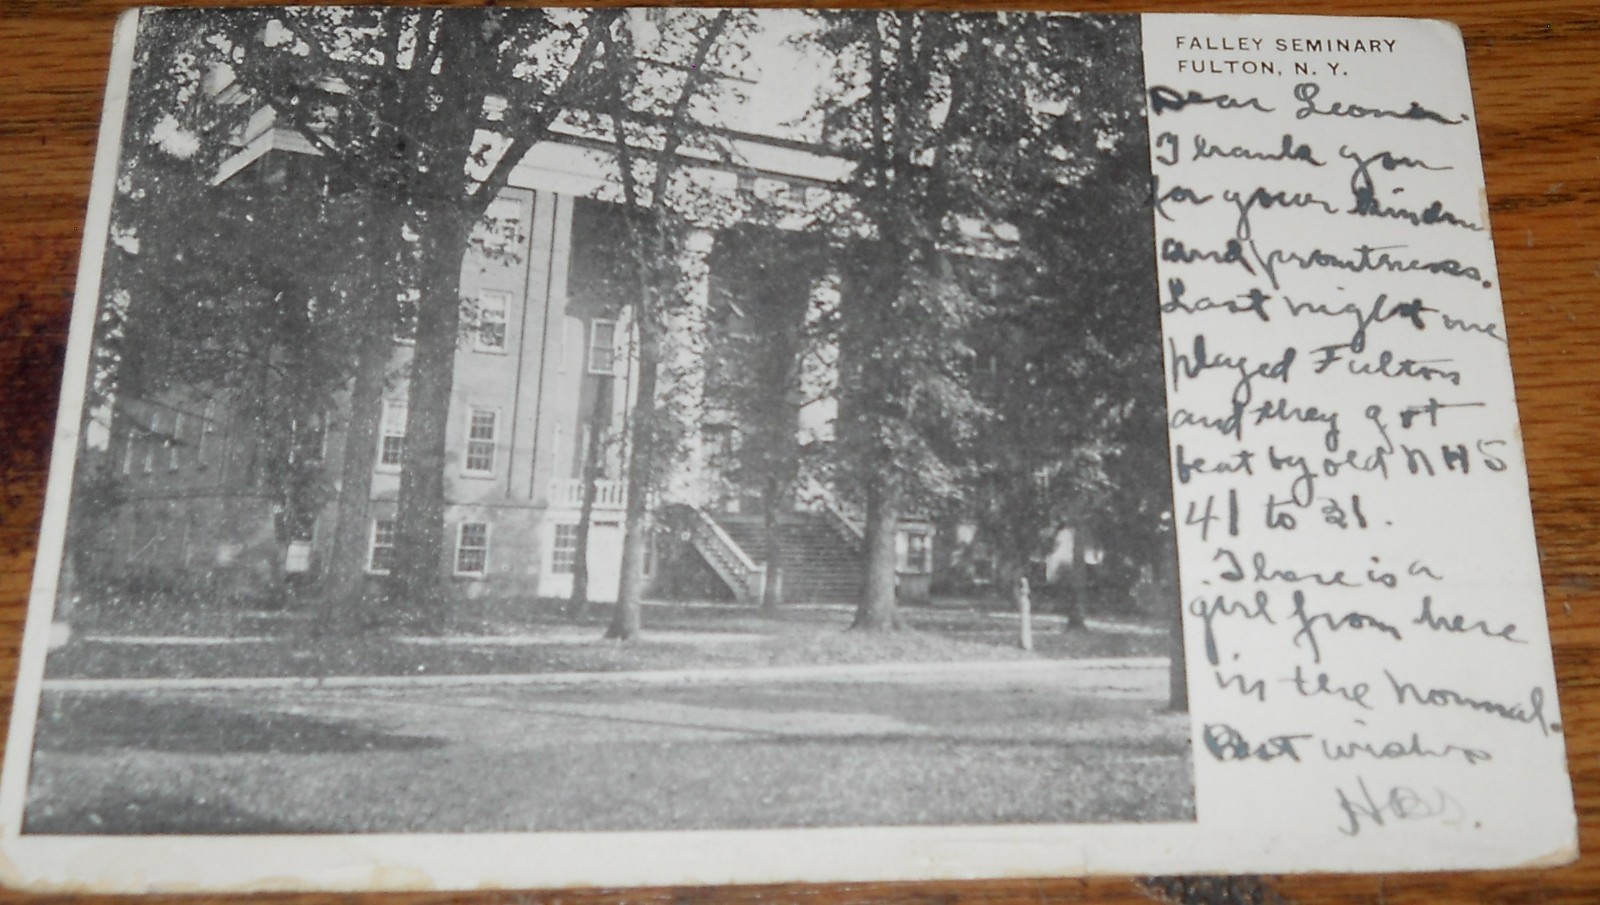 FALLEY SEMINARY
FULTON, N. Y.
Dear
I thank you
for your kindn
and promtness.
Last night we
played Fulton
and they got
beat by old NHS
41 to 31.
There is a
girl from here
in the Normal.
Best wishes
HBS.